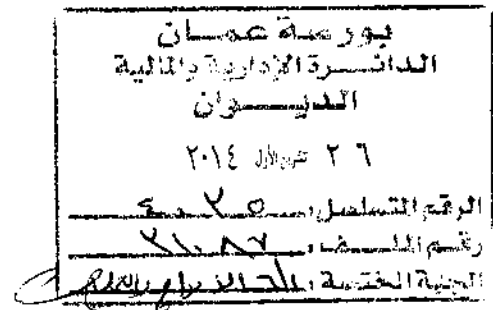 بورصة عمان
الدائسرة الإدارية والمالية
الديسوان
٢٦ تشرين الأول ٢٠١٤
الرقم المتسلسل: ٤٠٢٥
رقم الملف:
الجهة المختصة: